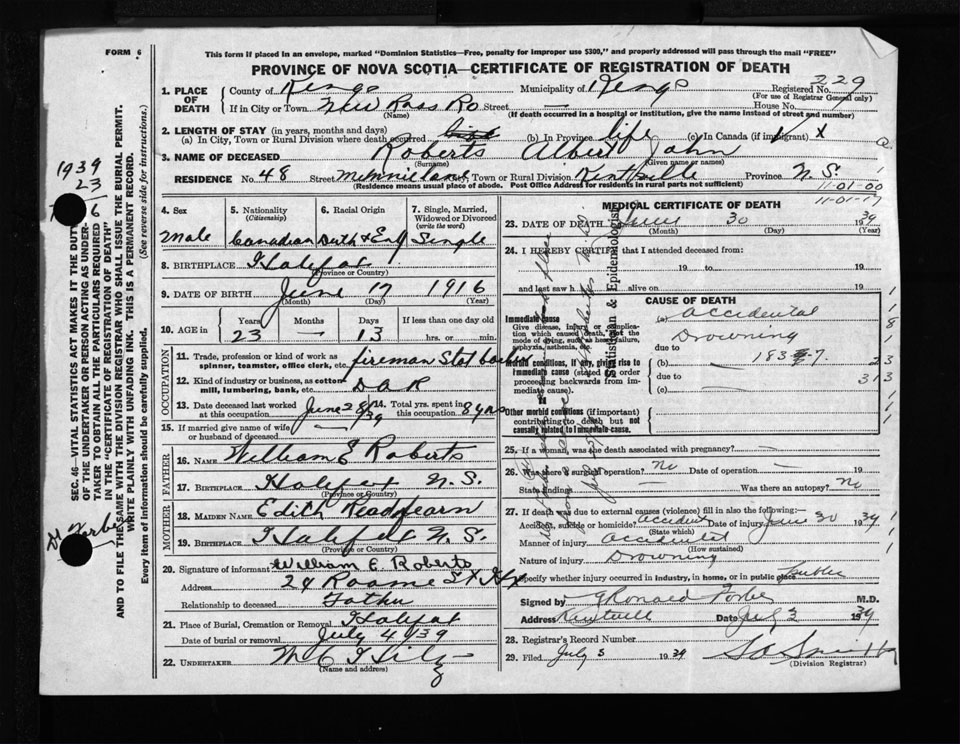 FORM 6
This form if placed in an envelope, marked "Dominion Statistics—Free, penalty for improper use $300," and properly addressed will pass through the mail "FREE"
PROVINCE OF NOVA SCOTIA—CERTIFICATE OF REGISTRATION OF DEATH
1. PLACE OF DEATH
County of Kings Municipality of Kings Registered No. 229
(For use of Registrar General only)
If in City or Town New Ross Rd Street — House No.
(Name) (If death occurred in a hospital or institution, give the name instead of street and number)
2. LENGTH OF STAY (in years, months and days)
(a) In City, Town or Rural Division where death occurred (b) In Province life (c) In Canada (if immigrant) x
3. NAME OF DECEASED Roberts Albert John
(Surname) (Given name or names)
RESIDENCE No. 48 Street City, Town or Rural Division Kentville Province N.S.
(Residence means usual place of abode. Post Office Address for residents in rural parts not sufficient)
11-01-00
11-01-17
SEC. 46—VITAL STATISTICS ACT MAKES IT THE DUTY
OF THE UNDERTAKER OR PERSON ACTING AS UNDER-
TAKER TO OBTAIN ALL THE PARTICULARS REQUIRED
IN THE "CERTIFICATE OF REGISTRATION OF DEATH"
AND TO FILE THE SAME WITH THE DIVISION REGISTRAR WHO SHALL ISSUE THE BURIAL PERMIT.
WRITE PLAINLY WITH UNFADING INK. THIS IS A PERMANENT RECORD.
Every item of information should be carefully supplied. (See reverse side for instructions.)
1939
23
6
Dr Forbes
4. Sex 5. Nationality 6. Racial Origin 7. Single, Married,
(Citizenship) Widowed or Divorced
(write the word)
Male Canadian Dutch & Eng Single
8. BIRTHPLACE Halifax
(Province or Country)
9. DATE OF BIRTH June 17 1916
(Month) (Day) (Year)
10. AGE in Years Months Days If less than one day old
23 — 13 hrs. or min.
OCCUPATION
11. Trade, profession or kind of work as fireman
spinner, teamster, office clerk, etc.
12. Kind of industry or business, as cotton D A R
mill, lumbering, bank, etc.
13. Date deceased last worked June 28/39 14. Total yrs. spent in 8 yrs
at this occupation this occupation
15. If married give name of wife —
or husband of deceased
FATHER
16. NAME William E Roberts
17. BIRTHPLACE Halifax N.S.
(Province or Country)
MOTHER
18. MAIDEN NAME Edith Readfearn
19. BIRTHPLACE Halifax N.S.
(Province or Country)
20. Signature of informant William E. Roberts
Address 24 Roome St Hfx
Relationship to deceased Father
21. Place of Burial, Cremation or Removal Halifax
Date of burial or removal July 4/39
22. UNDERTAKER
(Name and address)
MEDICAL CERTIFICATE OF DEATH
23. DATE OF DEATH June 30 1939
(Month) (Day) (Year)
24. I HEREBY CERTIFY that I attended deceased from:
19 to 19
and last saw h alive on 19
CAUSE OF DEATH
Immediate cause
Give disease, injury or complica-
tion which caused death, not the
mode of dying, such as heart failure,
asphyxia, asthenia, etc.
(a) Accidental
Drowning
due to
Morbid conditions, if any, giving rise to
immediate cause (stated in order
proceeding backwards from im-
mediate cause).
(b) 183
due to
(c) —
Other morbid conditions (if important)
contributing to death but not
causally related to immediate cause.
Statistician & Epidemiologist
25. If a woman, was the death associated with pregnancy? —
26. Was there a surgical operation? No Date of operation — 19
State findings — Was there an autopsy? No
27. If death was due to external causes (violence) fill in also the following:—
Accident, suicide or homicide? Accident Date of injury June 30 1939
(State which)
Manner of injury Accident
(How sustained)
Nature of injury Drowning
Specify whether injury occurred in industry, in home, or in public place Public
Signed by Ronald Forbes M.D.
Address Kentville Date July 3 1939
28. Registrar's Record Number
29. Filed July 5 1939
(Division Registrar)